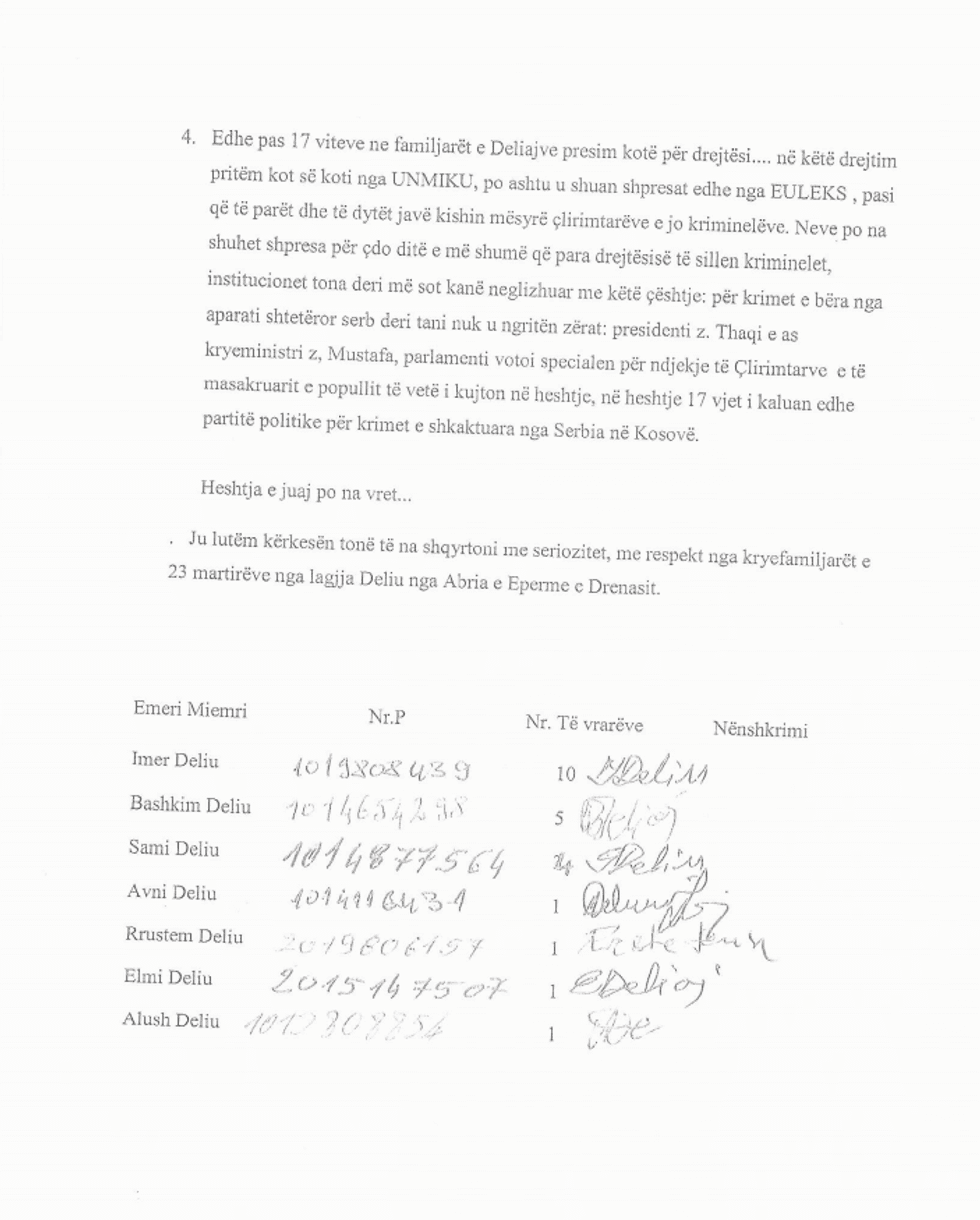 4. Edhe pas 17 viteve ne familjarët e Deliajve presim kotë për drejtësi.... në këtë drejtim
pritëm kot së koti nga UNMIKU, po ashtu u shuan shpresat edhe nga EULEKS , pasi
që të parët dhe të dytët javë kishin mësyrë çlirimtarëve e jo kriminelëve. Neve po na
shuhet shpresa për çdo ditë e më shumë që para drejtësisë të sillen kriminelet,
institucionet tona deri më sot kanë neglizhuar me këtë çështje: për krimet e bëra nga
aparati shtetëror serb deri tani nuk u ngritën zërat: presidenti z. Thaqi e as
kryeministri z, Mustafa, parlamenti votoi specialen për ndjekje të Çlirimtarve e të
masakruarit e popullit të vetë i kujton në heshtje, në heshtje 17 vjet i kaluan edhe
partitë politike për krimet e shkaktuara nga Serbia në Kosovë.
Heshtja e juaj po na vret...
. Ju lutëm kërkesën tonë të na shqyrtoni me seriozitet, me respekt nga kryefamiljarët e
23 martirëve nga lagjja Deliu nga Abria e Eperme e Drenasit.
Emeri Miemri Nr.P Nr. Të vrarëve Nënshkrimi
Imer Deliu 1019808439 10 IDeliu
Bashkim Deliu 5
Sami Deliu 1014877564 SDeliu
Avni Deliu 1
Rrustem Deliu 1
Elmi Deliu 2015147507 1 EDeliaj
Alush Deliu 1